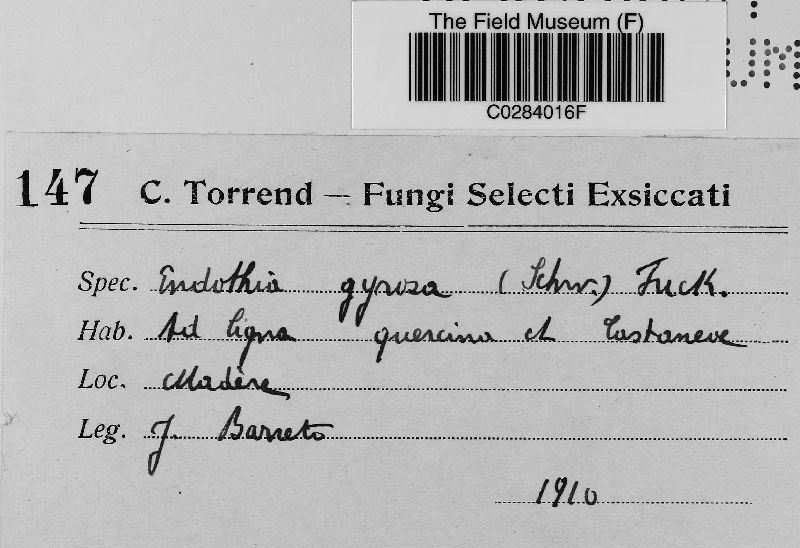 The Field Museum (F)
UM
C0284016F
147 C. Torrend — Fungi Selecti Exsiccati
Spec. Endothia gyrosa (Schw.) Fuck.
Hab. Ad ligna quercina et Castaneae
Loc. Madère
Leg. J. Barreto
1910